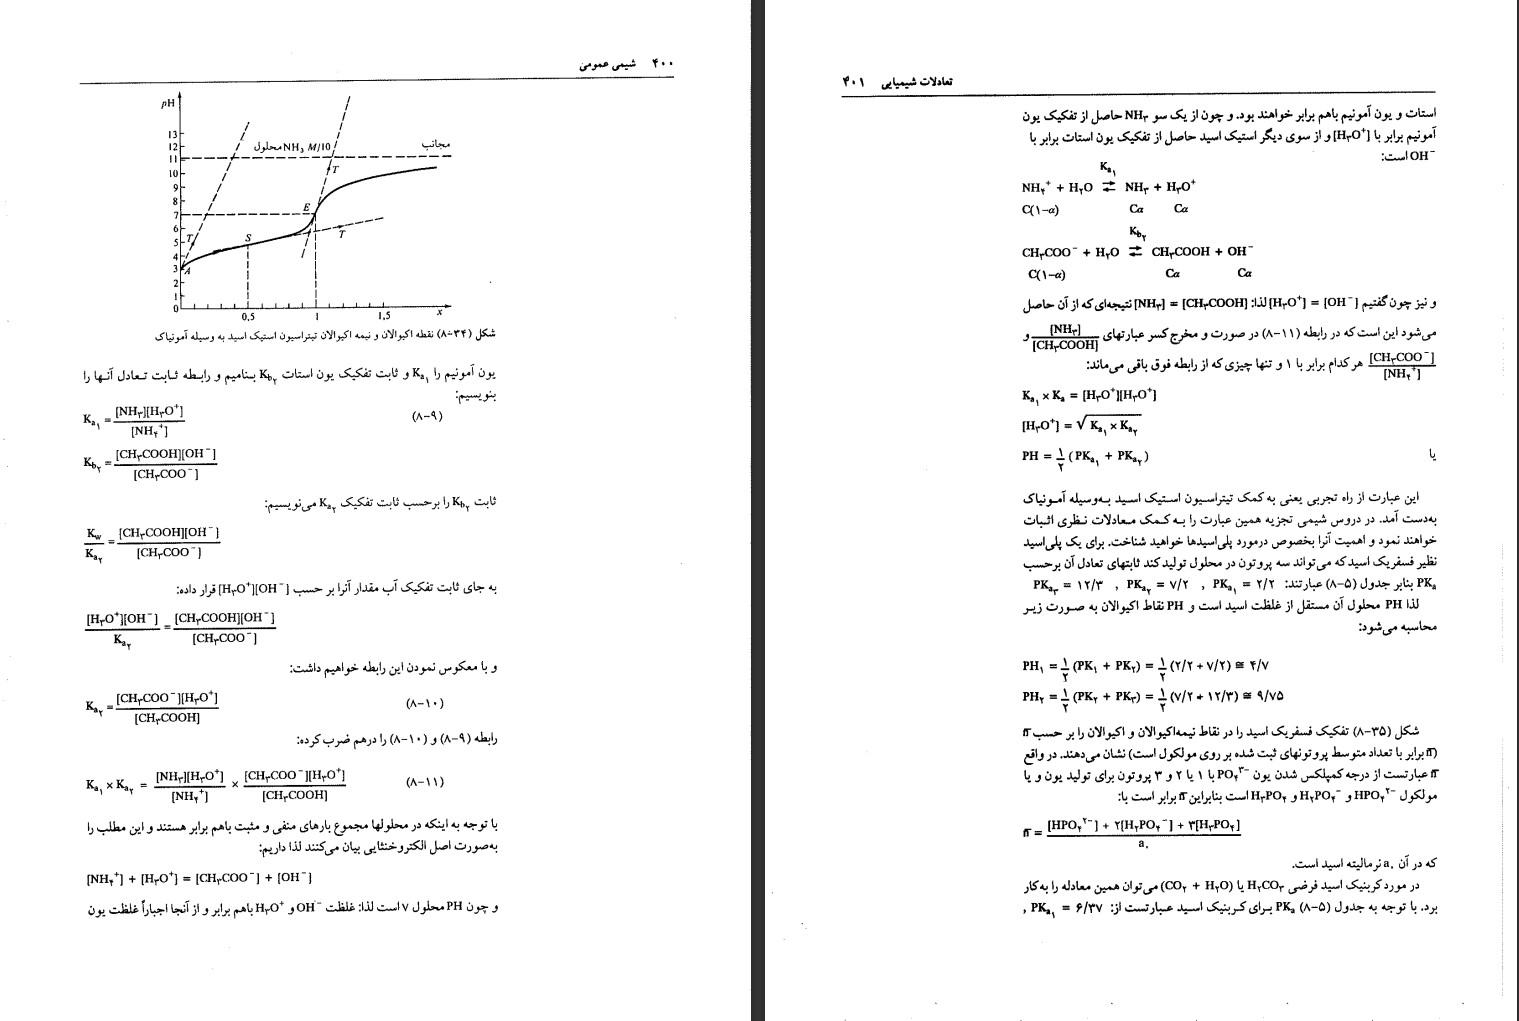 ۴۰۰ شیمی عمومی
pH
13
12
11
10
9
8
7
6
5
4
3
2
1
0
محلول NH₃ M/10
مجانب
T
E
T
S
T
A
0,5 1 1,5 x
شکل (۳۴-۸) نقطه اکیوالان و نیمه اکیوالان تیتراسیون استیک اسید به وسیله آمونیاک
یون آمونیم را Kₐ₁ و ثابت تفکیک یون استات K_b۲ بنامیم و رابطه ثابت تعادل آنها را
بنویسیم:
Kₐ₁ = [NH۳][H۳O⁺] / [NH۴⁺] (۸-۹)
K_b۲ = [CH۳COOH][OH⁻] / [CH۳COO⁻]
ثابت K_b۲ را برحسب ثابت تفکیک Kₐ۲ می‌نویسیم:
K_w / Kₐ۲ = [CH۳COOH][OH⁻] / [CH۳COO⁻]
به جای ثابت تفکیک آب مقدار آنرا بر حسب [H۳O⁺][OH⁻] قرار داده:
[H۳O⁺][OH⁻] / Kₐ۲ = [CH۳COOH][OH⁻] / [CH۳COO⁻]
و با معکوس نمودن این رابطه خواهیم داشت:
Kₐ۲ = [CH۳COO⁻][H۳O⁺] / [CH۳COOH] (۸-۱۰)
رابطه (۸-۹) و (۸-۱۰) را درهم ضرب کرده:
Kₐ₁ × Kₐ۲ = [NH۳][H۳O⁺] / [NH۴⁺] × [CH۳COO⁻][H۳O⁺] / [CH۳COOH] (۸-۱۱)
با توجه به اینکه در محلولها مجموع بارهای منفی و مثبت باهم برابر هستند و این مطلب را
به‌صورت اصل الکتروخنثایی بیان می‌کنند لذا داریم:
[NH۴⁺] + [H۳O⁺] = [CH۳COO⁻] + [OH⁻]
و چون PH محلول ۷ است لذا: غلظت OH⁻ و H۳O⁺ باهم برابر و از آنجا اجباراً غلظت یون
تعادلات شیمیایی ۴۰۱
استات و یون آمونیم باهم برابر خواهند بود. و چون از یک سو NH۳ حاصل از تفکیک یون
آمونیم برابر با [H۳O⁺] و از سوی دیگر استیک اسید حاصل از تفکیک یون استات برابر با
OH⁻ است:
Kₐ₁
NH۴⁺ + H۲O ⇄ NH۳ + H۳O⁺
C(۱-α) Cα Cα
K_b۲
CH۳COO⁻ + H۲O ⇄ CH۳COOH + OH⁻
C(۱-α) Cα Cα
و نیز چون گفتیم [H۳O⁺] = [OH⁻] لذا: [NH۳] = [CH۳COOH] نتیجه‌ای که از آن حاصل
می‌شود این است که در رابطه (۸-۱۱) در صورت و مخرج کسر عبارتهای [NH۳] / [CH۳COOH] و
[CH۳COO⁻] / [NH۴⁺] هر کدام برابر با ۱ و تنها چیزی که از رابطه فوق باقی می‌ماند:
Kₐ₁ × Kₐ = [H۳O⁺][H۳O⁺]
[H۳O⁺] = √Kₐ₁ × Kₐ۲
PH = ۱/۲ (PKₐ₁ + PKₐ۲) یا
این عبارت از راه تجربی یعنی به کمک تیتراسیون استیک اسید به‌وسیله آمونیاک
به‌دست آمد. در دروس شیمی تجزیه همین عبارت را به کمک معادلات نظری اثبات
خواهند نمود و اهمیت آنرا بخصوص درمورد پلی‌اسیدها خواهید شناخت. برای یک پلی‌اسید
نظیر فسفریک اسید که می‌تواند سه پروتون در محلول تولید کند ثابتهای تعادل آن برحسب
PKₐ بنابر جدول (۸-۵) عبارتند: PKₐ₁ = ۲/۲ , PKₐ۲ = ۷/۲ , PKₐ۳ = ۱۲/۳
لذا PH محلول آن مستقل از غلظت اسید است و PH نقاط اکیوالان به صورت زیر
محاسبه می‌شود:
PH۱ = ۱/۲ (PK۱ + PK۲) = ۱/۲ (۲/۲ + ۷/۲) ≅ ۴/۷
PH۲ = ۱/۲ (PK۲ + PK۳) = ۱/۲ (۷/۲ + ۱۲/۳) ≅ ۹/۷۵
شکل (۸-۳۵) تفکیک فسفریک اسید را در نقاط نیمه‌اکیوالان و اکیوالان را بر حسب n̄
(n̄ برابر با تعداد متوسط پروتونهای ثبت شده بر روی مولکول است) نشان می‌دهند. در واقع
n̄ عبارتست از درجه کمپلکس شدن یون PO۴³⁻ با ۱ یا ۲ و ۳ پروتون برای تولید یون و یا
مولکول HPO۴²⁻ و H۲PO۴⁻ و H۳PO۴ است بنابراین n̄ برابر است با:
n̄ = [HPO۴²⁻] + ۲[H۲PO۴⁻] + ۳[H۳PO۴] / a۰
که در آن a۰ نرمالیته اسید است.
در مورد کربنیک اسید فرضی H۲CO۳ یا (CO۲ + H۲O) می‌توان همین معادله را به‌کار
برد. با توجه به جدول (۸-۵) PKₐ برای کربنیک اسید عبارتست از: PKₐ₁ = ۶/۳۷ ,